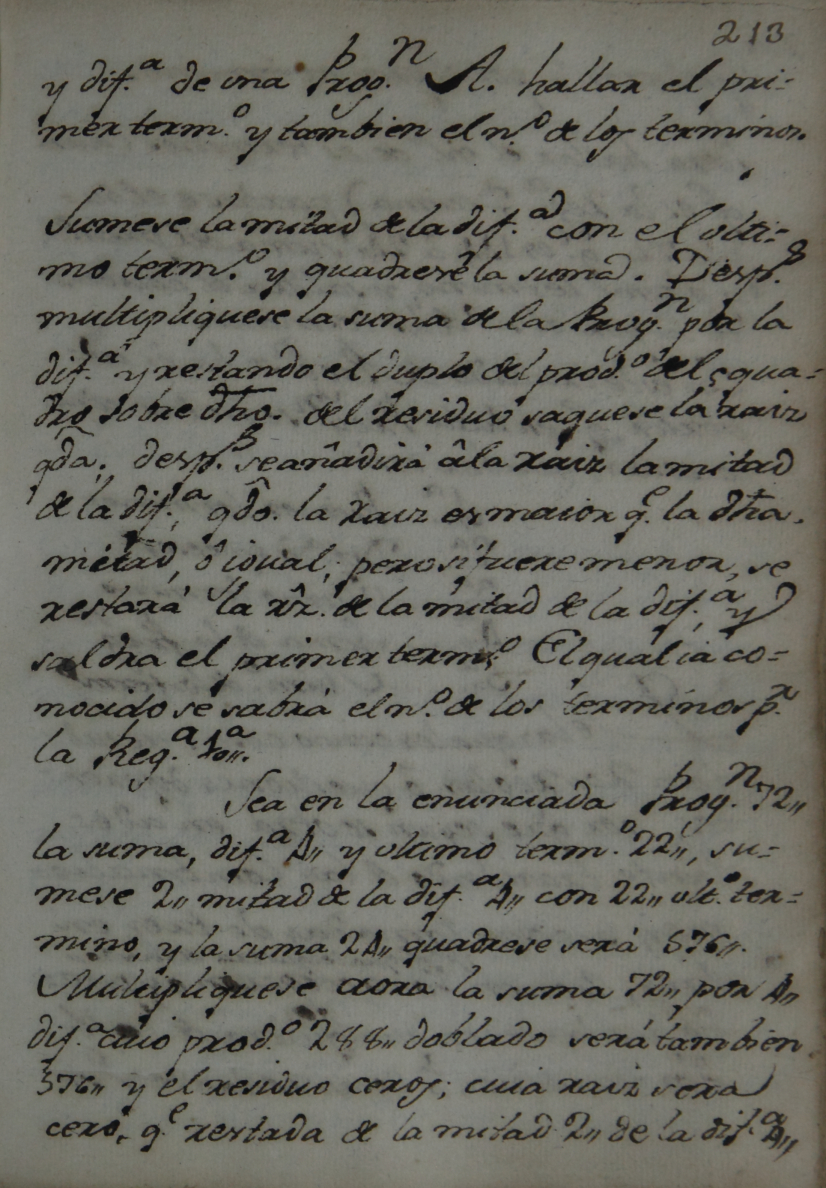 213
y dif.ª de una Prog.ⁿ A. hallar el pri-
mer term.º y tambien el n.º de los terminos.
Sumese la mitad de la dif.ª con el ulti-
mo term.º y quadrese la suma. Desp.s
multipliquese la suma de la Prog.n por la
dif.ª y restando el duplo del prod.º del qua-
dro sobre dho. del residuo saquese la raiz
qda. desp.s se añadirà à la raiz la mitad
de la dif.ª, qdo. la raiz es maior q.e la dha.
mitad, ô igual; pero si fuere menor, se
restará la rz. de la mitad de la dif.ª, y
saldra el primer term.º El qual ia co-
nocido se sabrà el n.º de los terminos p.r
la Reg.ª 10ª.
Sea en la enunciada Prog.n 72,,
la suma, dif.ª 4,, y ultimo term.º 22,,, su-
mese 2,, mitad de la dif.ª 4,, con 22,, ult.º ter-
mino, y la suma 24,, quadrese será 576,,.
Multipliquese aora la suma 72,, por 4,,
dif.ª cuio prod.º 288,, doblado será tambien
576,, y el residuo ceros; cuia raiz sera
cero, q.e restada de la mitad 2,, de la dif.ª 4,,